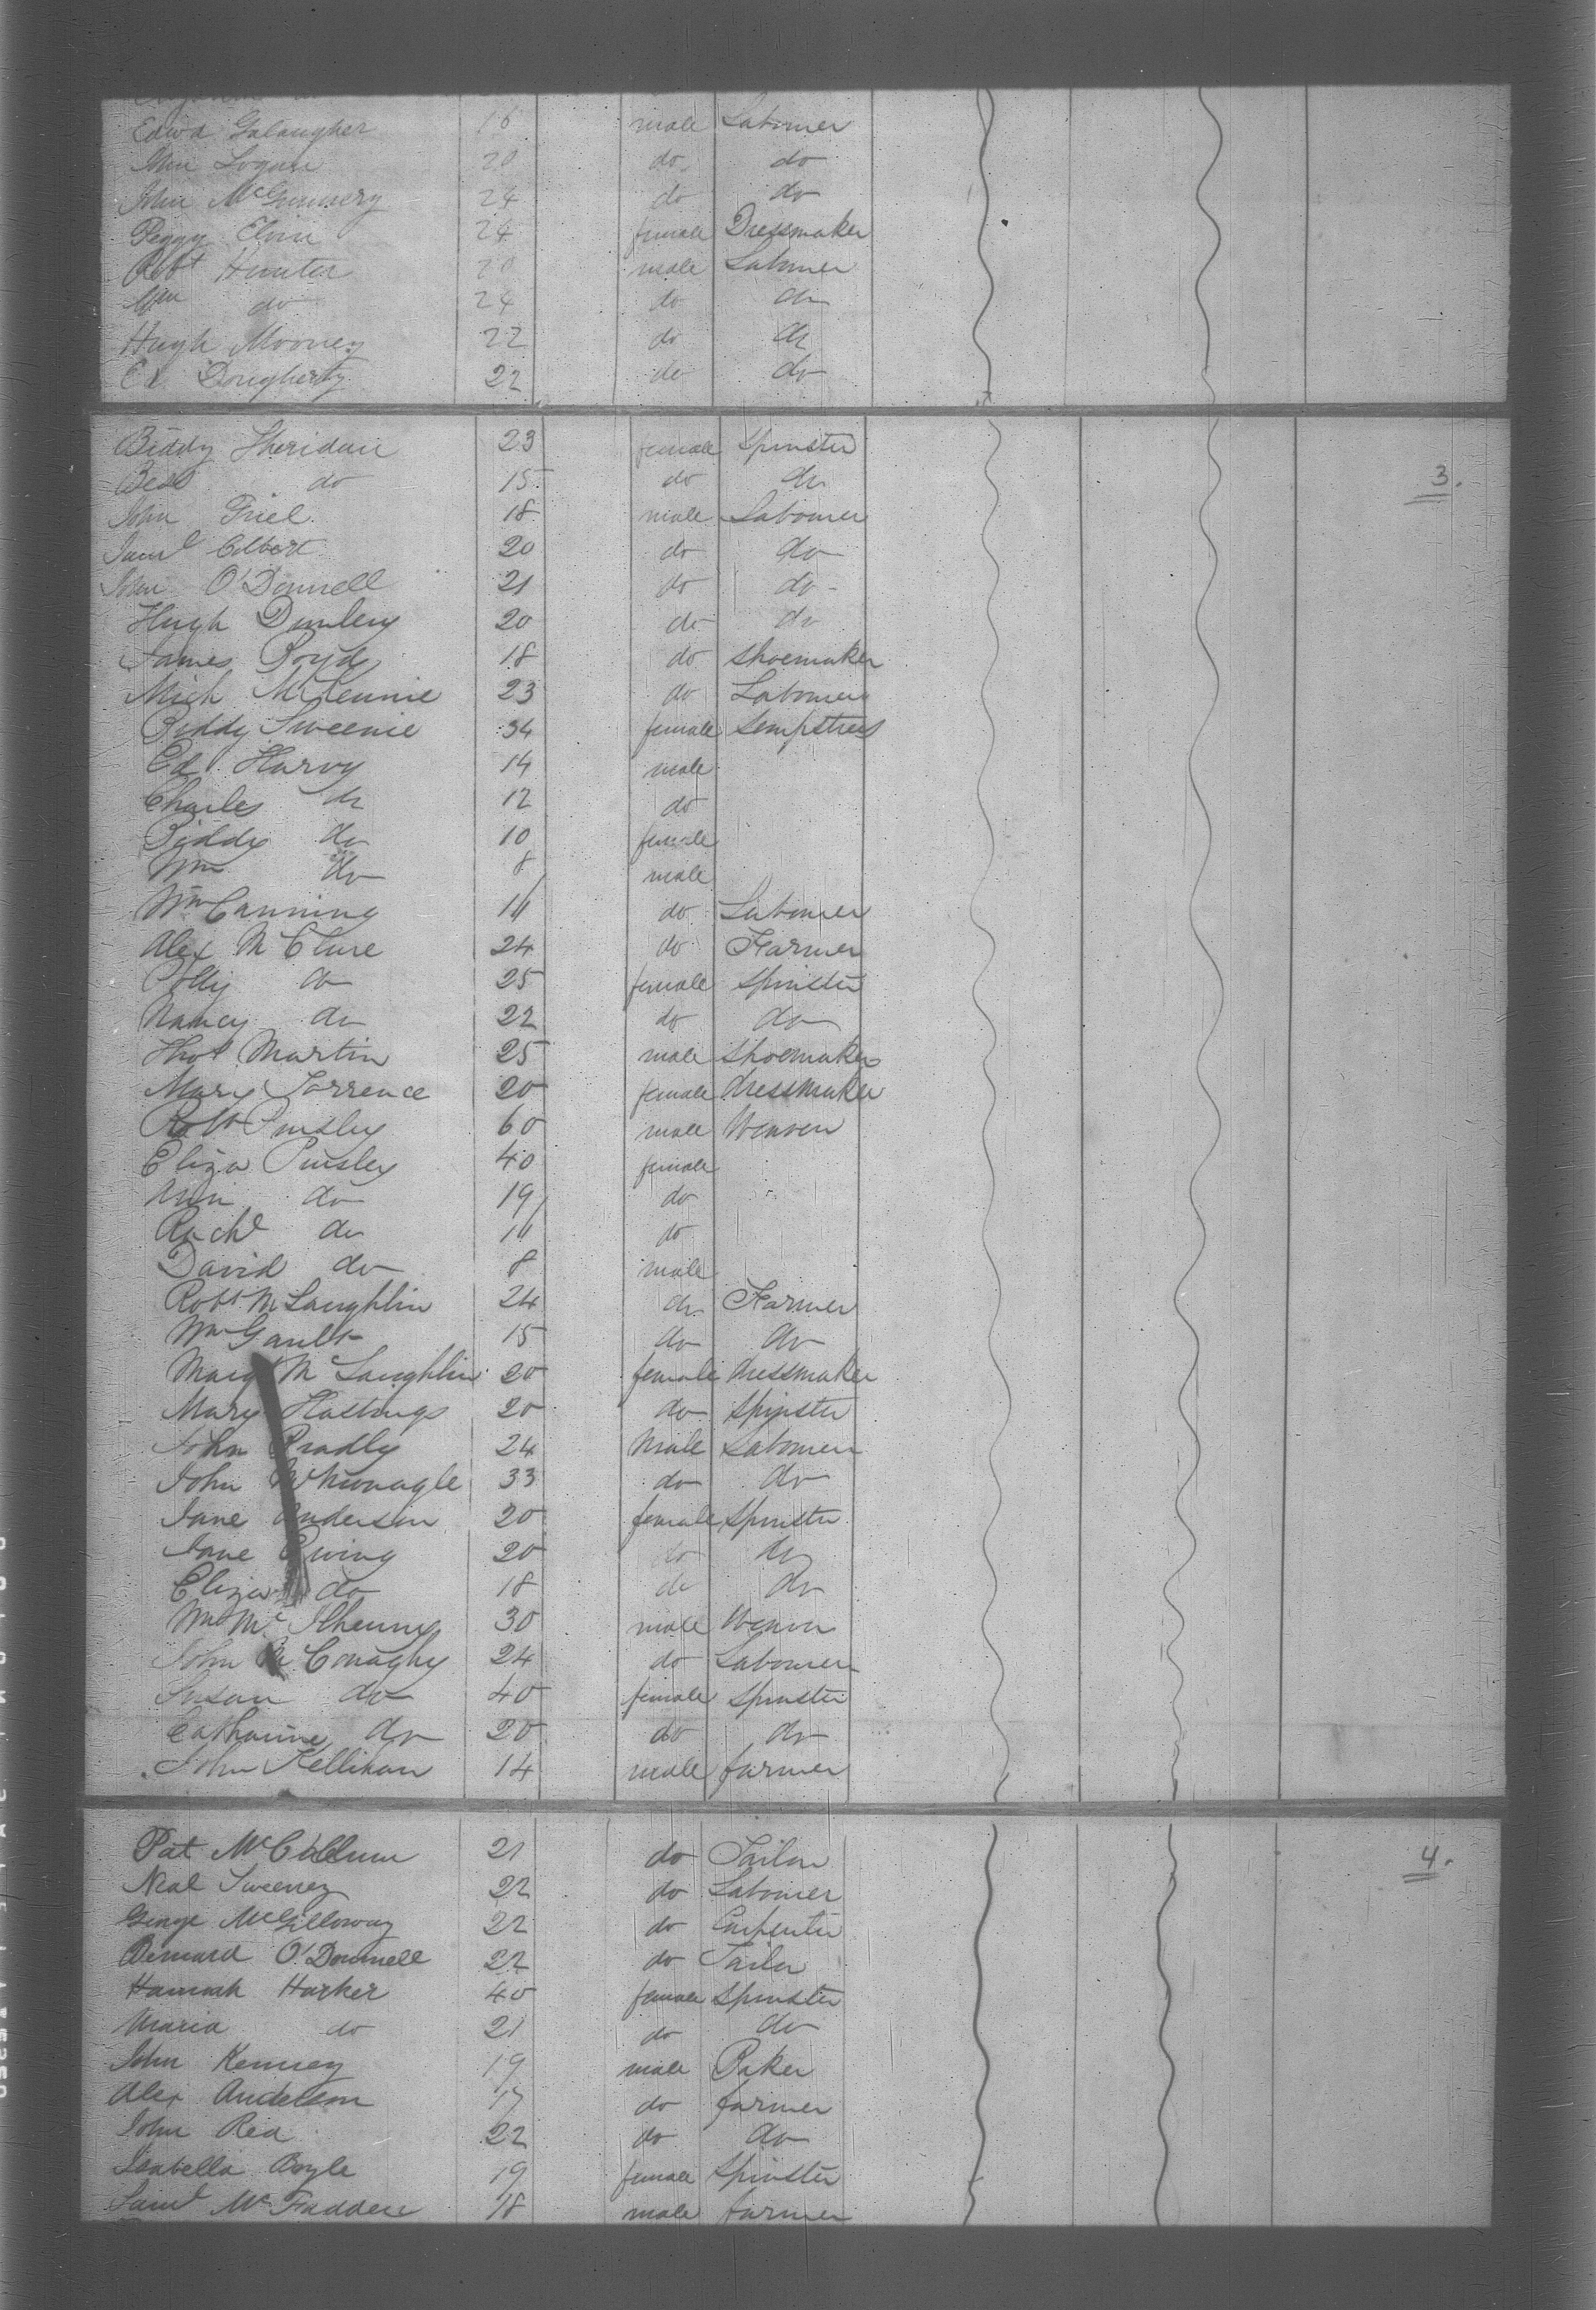 Edwd Galaugher 16 male Labourer
John Logue 20 do do
John McGinnery 24 do do
Peggy Elvin 24 female Dressmaker
Robt Hunter 20 male Labourer
Wm do 24 do do
Hugh Mooney 22 do do
Ed Dougherty 22 do do
Biddy Sheridan 23 female Spinster
Bess do 15 do do 3.
John Friel 18 male Labourer
Saml Colbert 20 do do
John O'Donnell 21 do do
Hugh Dunlevy 20 do do
James Boyd 18 do shoemaker
Mich McKennie 23 do Labourer
Biddy Sweenie 34 female Sempstress
Ed Harvy 14 male
Charles do 12 do
Biddy do 10 female
Wm do 8 male
Wm Canning 11 do Labourer
Alex McClure 24 do Farmer
Polly do 25 female Spinster
Nancy do 22 do do
Thos Martin 25 male Shoemaker
Mary Torrence 20 female dressmaker
Robt Pinsley 60 male Weaver
Eliza Pinsley 40 female
Ann do 19 do
Rachl do 11 do
David do 8 male
Robt McLaughlin 24 do Farmer
Wm Gault 15 do do
Margt McLaughlin 20 female dressmaker
Mary Hastings 20 do Spinster
John Bradly 24 Male Labourer
John 33 do do
Jane Anderson 20 female Spinster
Jane Ewing 20 do do
Eliza do 18 do do
Wm McIlhenny 30 male Weaver
John McConaghy 24 do Labourer
Susan do 40 female Spinster
Catharine do 20 do do
John Kellihan 14 male farmer
Pat McCollum 21 do Tailor 4.
Neal Sweeney 22 do Labourer
George McGilloway 22 do Carpenter
Bernard O'Donnell 22 do Tailor
Hannah Harker 40 female Spinster
Maria do 21 do do
John Kenney 19 male Baker
Alex Anderson 17 do farmer
John Rea 22 do do
Isabella Boyle 19 female Spinster
Saml McFadden 18 male farmer